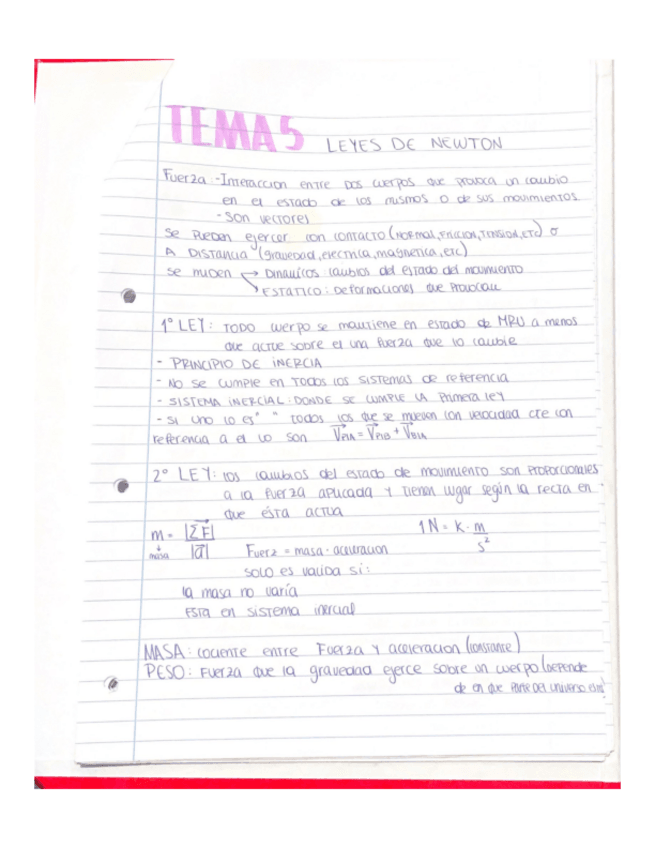 TEMA 5 LEYES DE NEWTON
Fuerza - Interaccion entre dos cuerpos que provoca un cambio
en el estado de los mismos o de sus movimientos
- Son vectores
Se pueden ejercer con contacto (normal, friccion, tension, etc) o
A DISTANCIA (gravedad, electrica, magnetica, etc)
Se miden → Dinamicos: cambios del estado del movimiento
→ ESTATICO: Deformaciones que provocan
1º LEY: TODO cuerpo se mantiene en estado de MRU a menos
que actue sobre el una fuerza que lo cambie
- PRINCIPIO DE INERCIA
- NO se cumple en todos los sistemas de referencia
- SISTEMA INERCIAL: DONDE se cumple la primera ley
- Si uno lo es " " todos los que se mueven con velocidad cte con
referencia a el lo son V⃗P/A = V⃗P/B + V⃗B/A
2º LEY: los cambios del estado de movimiento son proporcionales
a la fuerza aplicada y tienen lugar según la recta en
que ésta actua
m = |ΣF⃗| / |a⃗| 1N = K · m / s²
masa Fuerz = masa · aceleracion
solo es valida si:
la masa no varía
ESTA en sistema inercial
MASA: cociente entre Fuerza y aceleracion (constante)
PESO: Fuerza que la gravedad ejerce sobre un cuerpo (Depende
de en que parte del universo este)